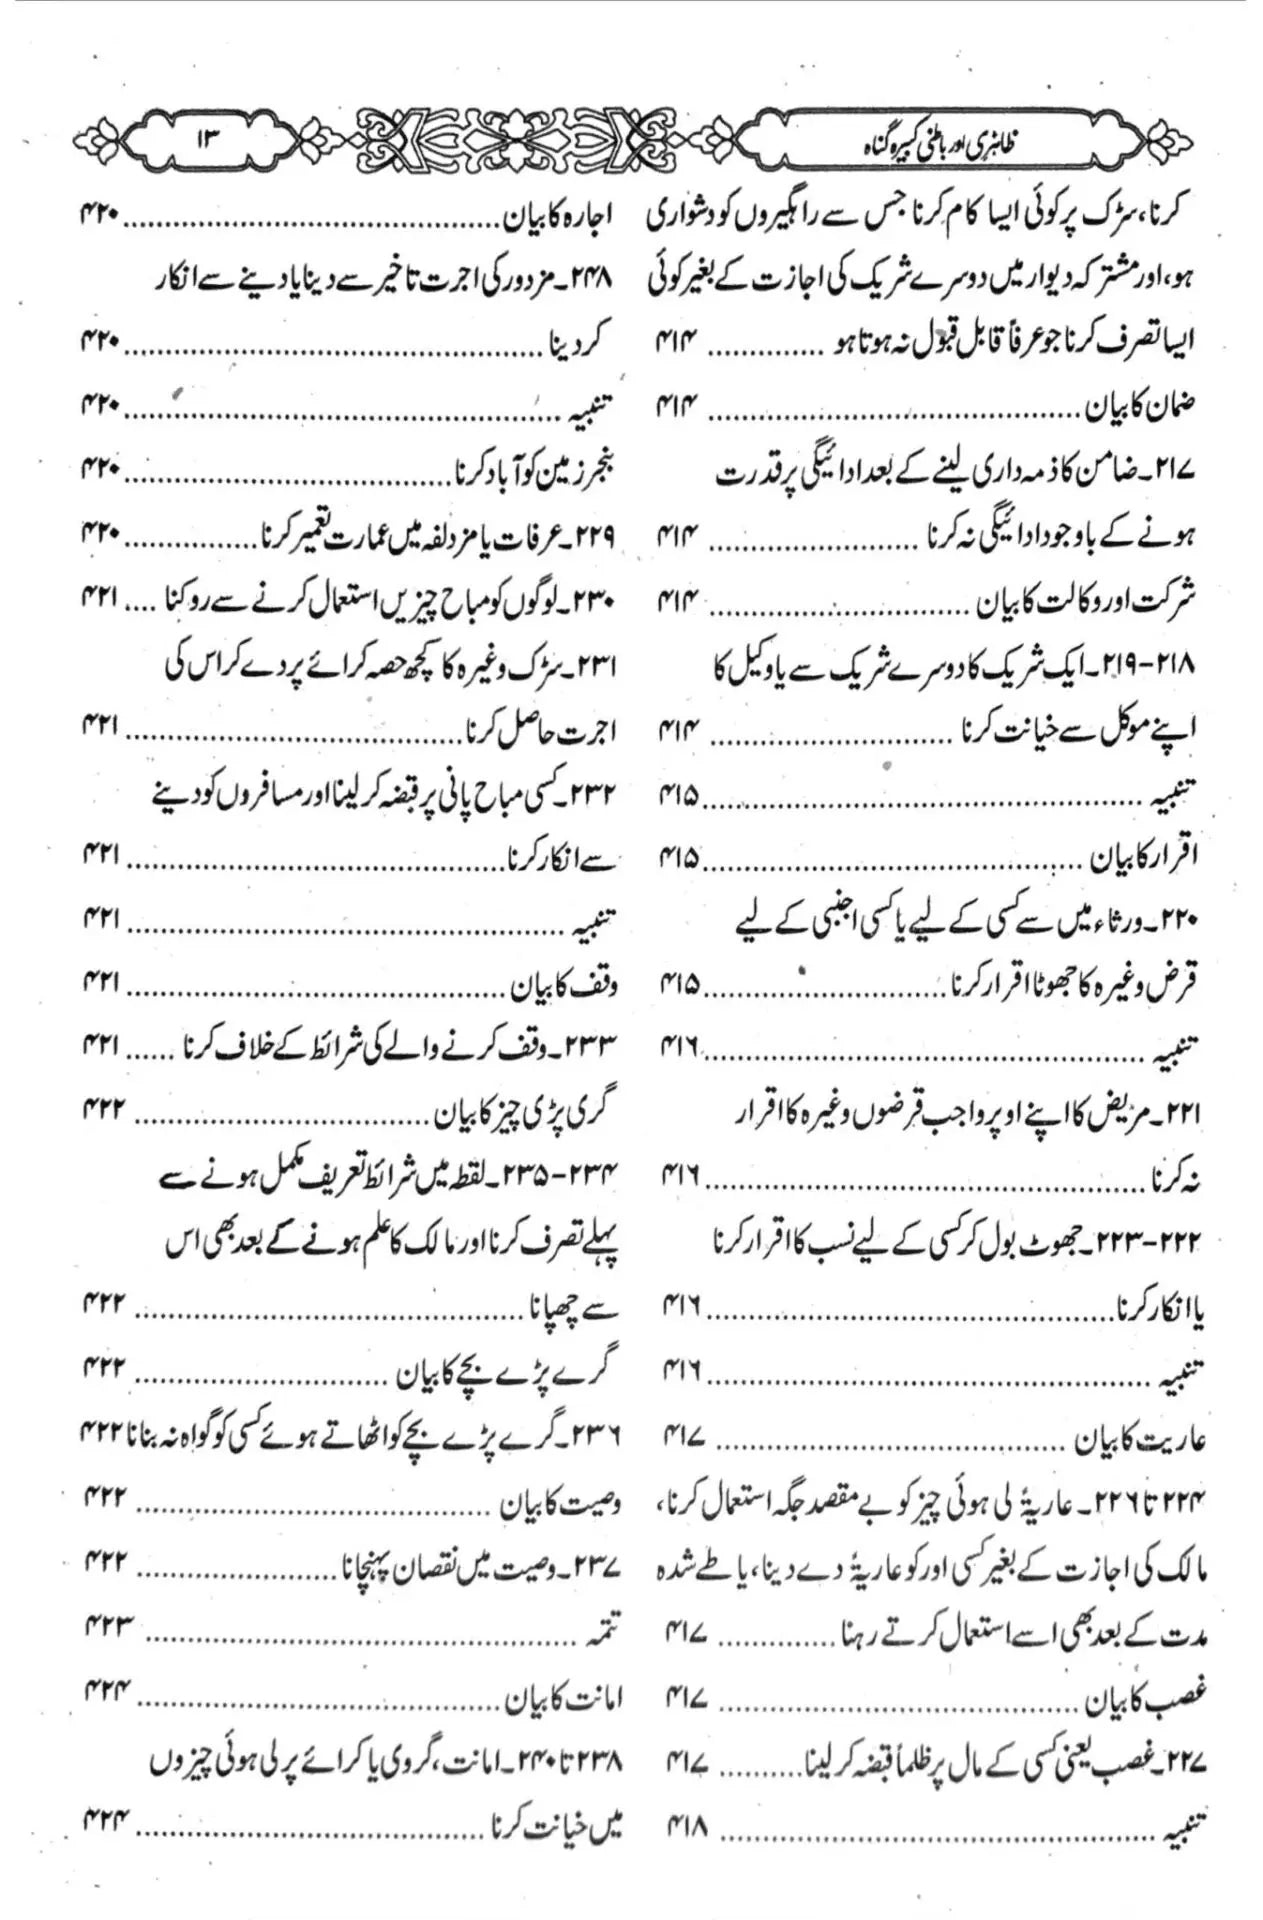 ظاہری اور باطنی کبیرہ گناہ
۱۳
کرنا، سڑک پر کوئی ایسا کام کرنا جس سے راہگیروں کو دشواری
ہو، اور مشترکہ دیوار میں دوسرے شریک کی اجازت کے بغیر کوئی
ایسا تصرف کرنا جو عرفاً قابل قبول نہ ہوتا ہو ............. ۴۱۴
ضمان کا بیان ............. ۴۱۴
۲۱۷۔ضامن کا ذمہ داری لینے کے بعد ادائیگی پر قدرت
ہونے کے باوجود ادائیگی نہ کرنا ............. ۴۱۴
شرکت اور وکالت کا بیان ............. ۴۱۴
۲۱۸-۲۱۹۔ایک شریک کا دوسرے شریک سے یا وکیل کا
اپنے موکل سے خیانت کرنا ............. ۴۱۴
تنبیہ ............. ۴۱۵
اقرار کا بیان ............. ۴۱۵
۲۲۰۔ورثاء میں سے کسی کے لیے یا کسی اجنبی کے لیے
قرض وغیرہ کا جھوٹا اقرار کرنا ............. ۴۱۵
تنبیہ ............. ۴۱۶
۲۲۱۔مریض کا اپنے اوپر واجب قرضوں وغیرہ کا اقرار
نہ کرنا ............. ۴۱۶
۲۲۲-۲۲۳۔جھوٹ بول کر کسی کے لیے نسب کا اقرار کرنا
یا انکار کرنا ............. ۴۱۶
تنبیہ ............. ۴۱۶
عاریت کا بیان ............. ۴۱۷
۲۲۴ تا ۲۲۶۔عاریۃً لی ہوئی چیز کو بے مقصد جگہ استعمال کرنا،
مالک کی اجازت کے بغیر کسی اور کو عاریۃً دے دینا، یا طے شدہ
مدت کے بعد بھی اسے استعمال کرتے رہنا ............. ۴۱۷
غصب کا بیان ............. ۴۱۷
۲۲۷۔غصب یعنی کسی کے مال پر ظلماً قبضہ کر لینا ............. ۴۱۷
تنبیہ ............. ۴۱۸
اجارہ کا بیان ............. ۴۲۰
۲۴۸۔مزدور کی اجرت تاخیر سے دینا یا دینے سے انکار
کر دینا ............. ۴۲۰
تنبیہ ............. ۴۲۰
بنجر زمین کو آباد کرنا ............. ۴۲۰
۲۲۹۔عرفات یا مزدلفہ میں عمارت تعمیر کرنا ............. ۴۲۰
۲۳۰۔لوگوں کو مباح چیزیں استعمال کرنے سے روکنا .... ۴۲۱
۲۳۱۔سڑک وغیرہ کا کچھ حصہ کرائے پر دے کر اس کی
اجرت حاصل کرنا ............. ۴۲۱
۲۳۲۔کسی مباح پانی پر قبضہ کر لینا اور مسافروں کو دینے
سے انکار کرنا ............. ۴۲۱
تنبیہ ............. ۴۲۱
وقف کا بیان ............. ۴۲۱
۲۳۳۔وقف کرنے والے کی شرائط کے خلاف کرنا ...... ۴۲۱
گری پڑی چیز کا بیان ............. ۴۲۲
۲۳۴-۲۳۵۔لقطہ میں شرائط تعریف مکمل ہونے سے
پہلے تصرف کرنا اور مالک کا علم ہونے کے بعد بھی اس
سے چھپانا ............. ۴۲۲
گرے پڑے بچے کا بیان ............. ۴۲۲
۲۳۶۔گرے پڑے بچے کو اٹھاتے ہوئے کسی کو گواہ نہ بنانا ۴۲۲
وصیت کا بیان ............. ۴۲۲
۲۳۷۔وصیت میں نقصان پہنچانا ............. ۴۲۲
تتمہ ............. ۴۲۳
امانت کا بیان ............. ۴۲۴
۲۳۸ تا ۲۴۰۔امانت، گروی یا کرائے پر لی ہوئی چیزوں
میں خیانت کرنا ............. ۴۲۴